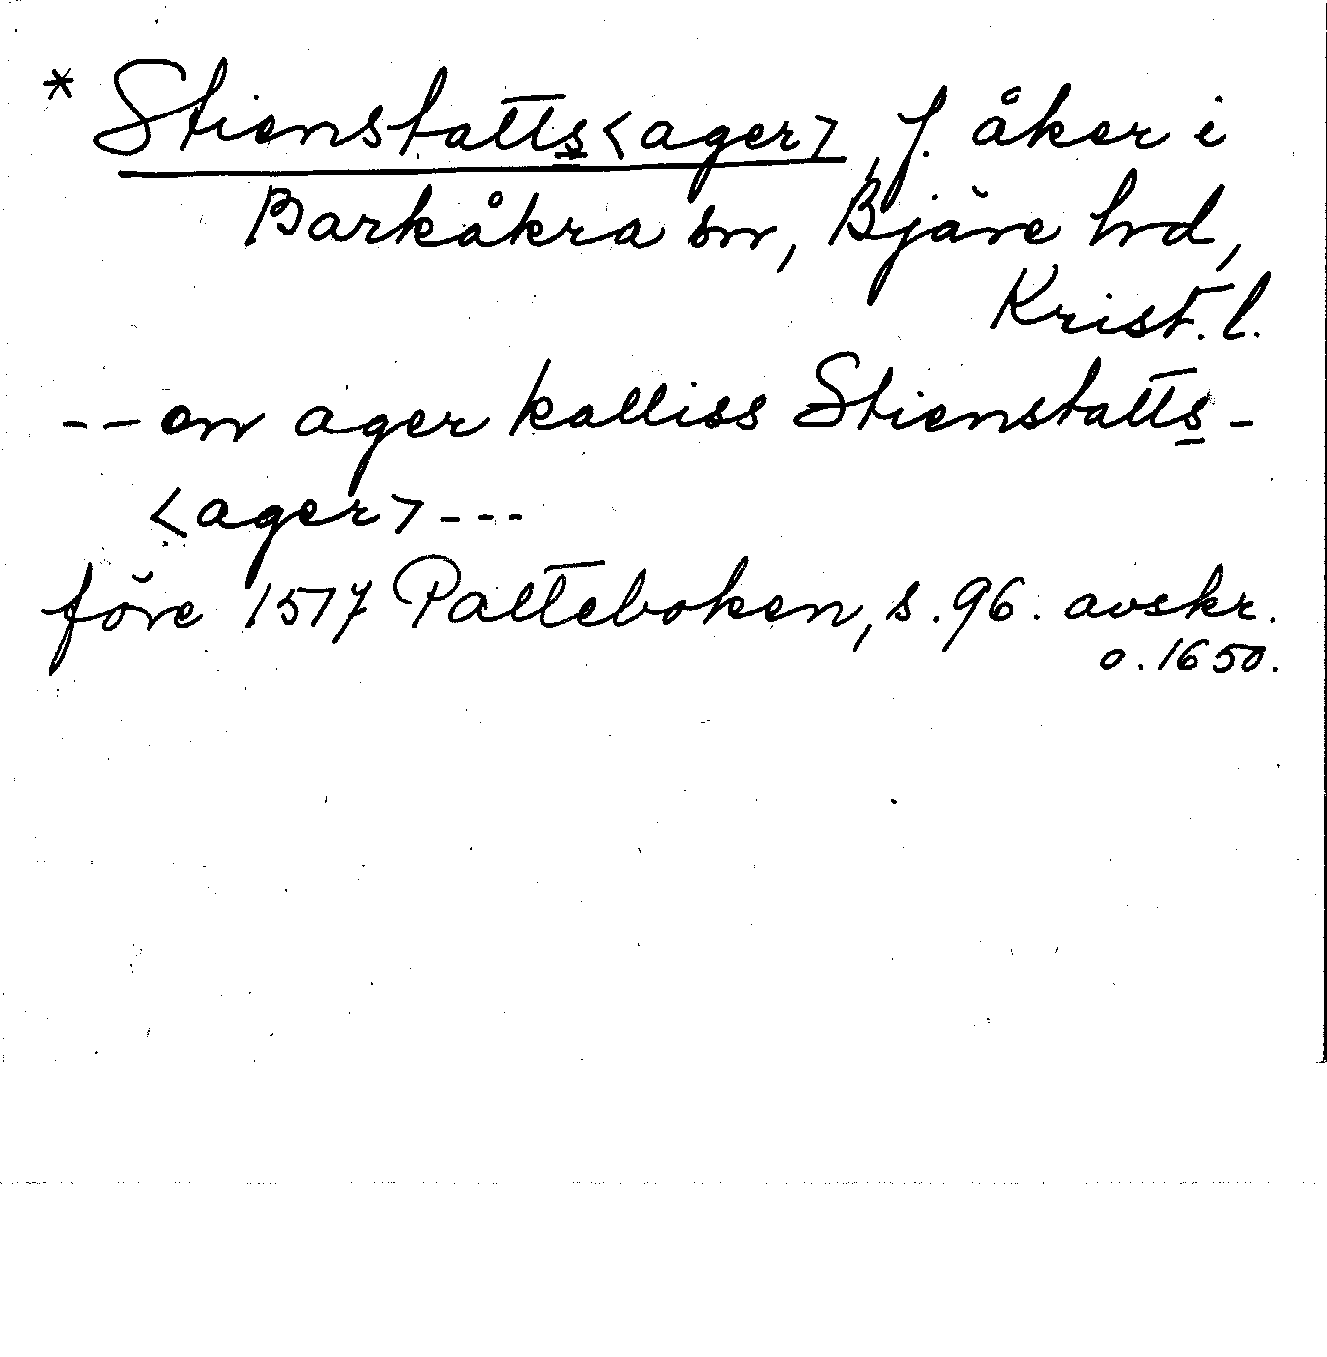 * Stienstatts<ager>, f. åker i
Barkåkra sn, Bjäre hd,
Krist. l.
-- en ager kalliss Stienstatts-
<ager> ---
före 1517 Palteboken, s. 96. avskr.
o. 1650.